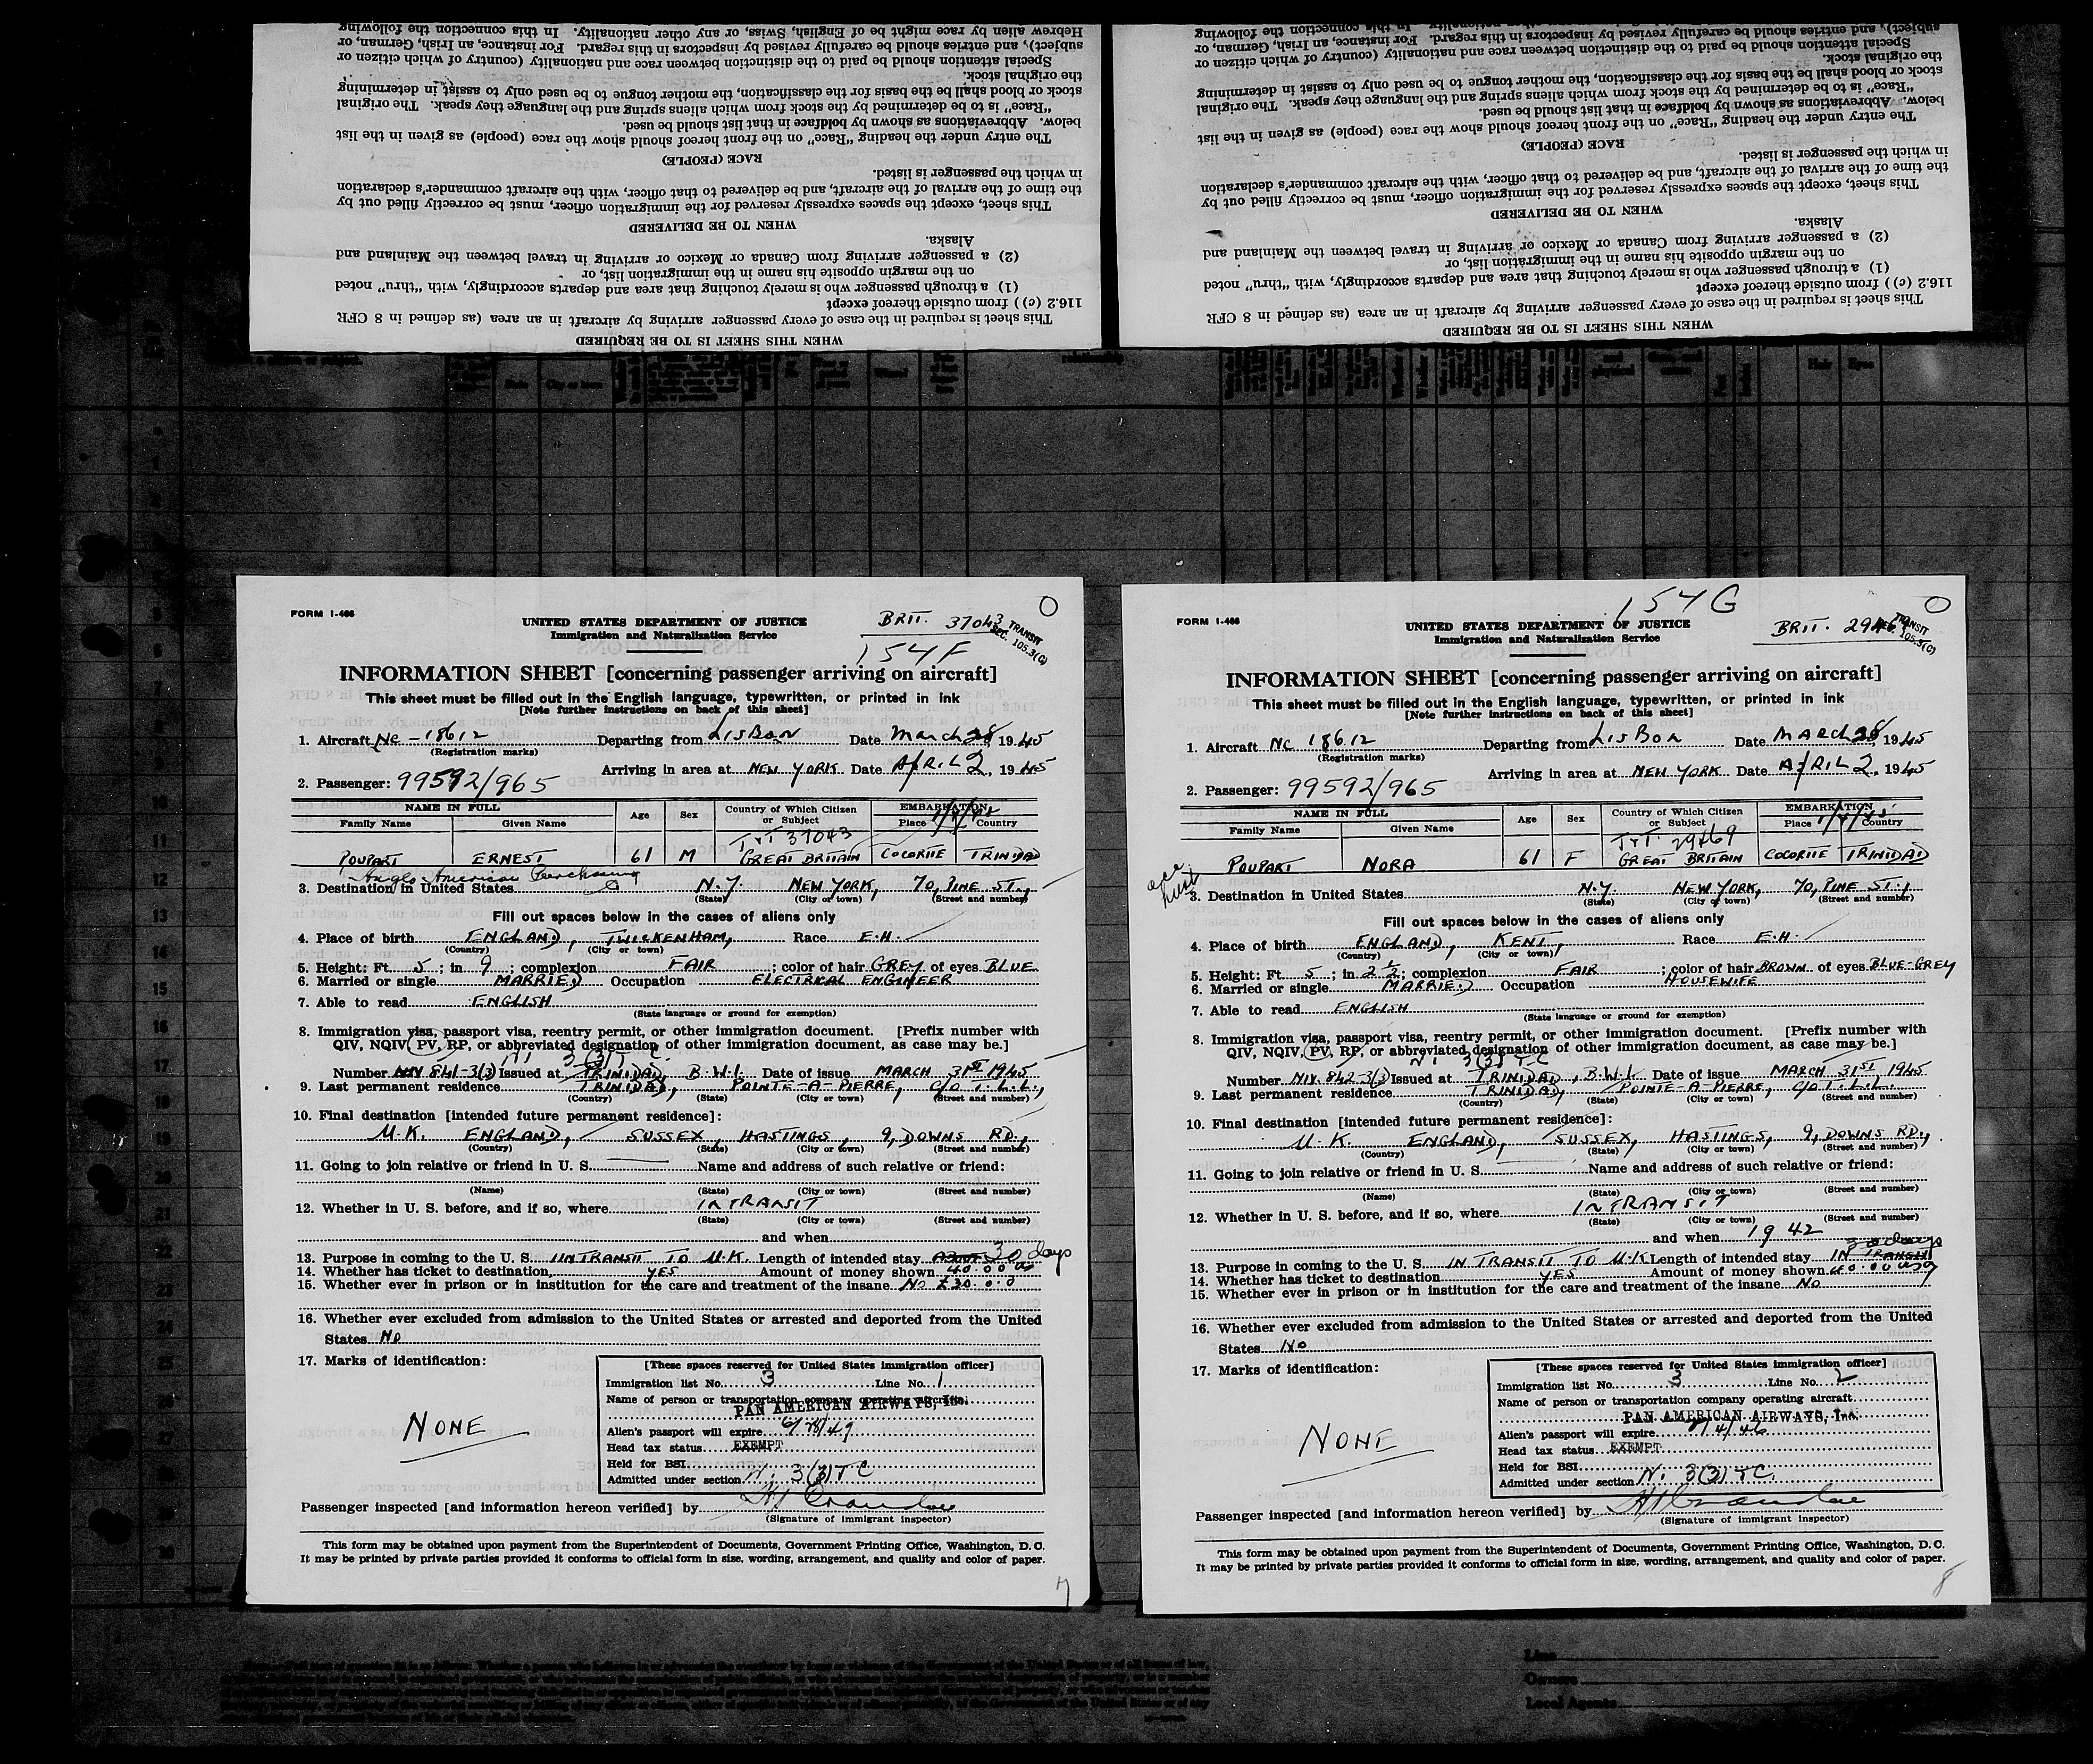 Hebrew alien by race might be of English, Swiss, or any other nationality. In this connection the following
subject), and entries should be carefully revised by inspectors in this regard. For instance, an Irish, German, or
Special attention should be paid to the distinction between race and nationality (country of which citizen or
the original stock.
stock or blood shall be the basis for the classification, the mother tongue to be used only to assist in determining
"Race" is to be determined by the stock from which aliens spring and the language they speak. The original
below. Abbreviations as shown by boldface in that list should be used.
The entry under the heading "Race" on the front hereof should show the race (people) as given in the list
RACE (PEOPLE)
in which the passenger is listed.
the time of the arrival of the aircraft, and be delivered to that officer, with the aircraft commander's declaration
This sheet, except the spaces expressly reserved for the immigration officer, must be correctly filled out by
WHEN TO BE DELIVERED
Alaska.
(2) a passenger arriving from Canada or Mexico or arriving in travel between the Mainland and
on the margin opposite his name in the immigration list, or
(1) a through passenger who is merely touching that area and departs accordingly, with "thru" noted
116.2 (c)) from outside thereof except
This sheet is required in the case of every passenger arriving by aircraft in an area (as defined in 8 CFR
WHEN THIS SHEET IS TO BE REQUIRED
subject), and entries should be carefully revised by inspectors in this regard. For instance, an Irish, German, or
Special attention should be paid to the distinction between race and nationality (country of which citizen or
the original stock.
stock or blood shall be the basis for the classification, the mother tongue to be used only to assist in determining
"Race" is to be determined by the stock from which aliens spring and the language they speak. The original
below. Abbreviations as shown by boldface in that list should be used.
The entry under the heading "Race" on the front hereof should show the race (people) as given in the list
RACE (PEOPLE)
in which the passenger is listed.
the time of the arrival of the aircraft, and be delivered to that officer, with the aircraft commander's declaration
This sheet, except the spaces expressly reserved for the immigration officer, must be correctly filled out by
WHEN TO BE DELIVERED
Alaska.
(2) a passenger arriving from Canada or Mexico or arriving in travel between the Mainland and
on the margin opposite his name in the immigration list, or
(1) a through passenger who is merely touching that area and departs accordingly, with "thru" noted
116.2 (c)) from outside thereof except
This sheet is required in the case of every passenger arriving by aircraft in an area (as defined in 8 CFR
WHEN THIS SHEET IS TO BE REQUIRED
FORM I-466
UNITED STATES DEPARTMENT OF JUSTICE
Immigration and Naturalization Service
BRIT. 37043
TRANSIT
SEC. 105.3(C)
154F
INFORMATION SHEET [concerning passenger arriving on aircraft]
This sheet must be filled out in the English language, typewritten, or printed in ink
[Note further instructions on back of this sheet]
1. Aircraft NC-18612 Departing from LISBON Date March 28, 1945
(Registration marks)
Arriving in area at NEW YORK Date APRIL 2, 1945
2. Passenger: 99592/965
NAME IN FULL Age Sex Country of Which Citizen or Subject EMBARKATION
Family Name Given Name Place Country
T&T 37043
POUPART ERNEST 61 M GREAT BRITAIN COCORITE TRINIDAD
Anglo American Purchasing
3. Destination in United States N.Y. NEW YORK, 70, PINE ST.,
(State) (City or town) (Street and number)
Fill out spaces below in the cases of aliens only
4. Place of birth ENGLAND, TWICKENHAM, Race E.H.
(Country) (City or town)
5. Height: Ft. 5; in 9; complexion FAIR; color of hair GREY of eyes BLUE
6. Married or single MARRIED Occupation ELECTRICAL ENGINEER
7. Able to read ENGLISH
(State language or ground for exemption)
8. Immigration visa, passport visa, reentry permit, or other immigration document. [Prefix number with
QIV, NQIV, PV, RP, or abbreviated designation of other immigration document, as case may be.]
3(3) T.C.
Number 841-3(3) Issued at TRINIDAD, B.W.I. Date of issue MARCH 31ST 1945
9. Last permanent residence TRINIDAD, POINTE-A-PIERRE, C/O T.L.L.,
(Country) (State) (City or town) (Street and number)
10. Final destination [intended future permanent residence]:
U.K. ENGLAND, SUSSEX, HASTINGS, 9, DOWNS RD.,
(Country) (State) (City or town) (Street and number)
11. Going to join relative or friend in U. S. Name and address of such relative or friend:
(Name) (State) (City or town) (Street and number)
12. Whether in U. S. before, and if so, where IN TRANSIT
(State) (City or town) (Street and number)
and when
13. Purpose in coming to the U. S. IN TRANSIT TO U.K. Length of intended stay ABOUT 30 days
14. Whether has ticket to destination YES Amount of money shown 40.00
15. Whether ever in prison or in institution for the care and treatment of the insane NO £30.0.0
16. Whether ever excluded from admission to the United States or arrested and deported from the United
States NO
17. Marks of identification:
NONE
[These spaces reserved for United States immigration officer]
Immigration list No. 3 Line No. 1
Name of person or transportation company operating aircraft
PAN AMERICAN AIRWAYS, Inc.
Alien's passport will expire 6/28/49
Head tax status EXEMPT
Held for BSI
Admitted under section N. 3(3) TC
Passenger inspected [and information hereon verified] by
(Signature of immigrant inspector)
This form may be obtained upon payment from the Superintendent of Documents, Government Printing Office, Washington, D. C.
It may be printed by private parties provided it conforms to official form in size, wording, arrangement, and quality and color of paper.
7
154G
FORM I-466
UNITED STATES DEPARTMENT OF JUSTICE
Immigration and Naturalization Service
BRIT. 29469
TRANSIT
105.3(C)
INFORMATION SHEET [concerning passenger arriving on aircraft]
This sheet must be filled out in the English language, typewritten, or printed in ink
[Note further instructions on back of this sheet]
1. Aircraft NC 18612 Departing from LISBON Date MARCH 28, 1945
(Registration marks)
Arriving in area at NEW YORK Date APRIL 2, 1945
2. Passenger: 99592/965
NAME IN FULL Age Sex Country of Which Citizen or Subject EMBARKATION
Family Name Given Name Place Country
T&T 29469
POUPART NORA 61 F GREAT BRITAIN COCORITE TRINIDAD
acc husb
3. Destination in United States N.Y. NEW YORK, 70, PINE ST.,
(State) (City or town) (Street and number)
Fill out spaces below in the cases of aliens only
4. Place of birth ENGLAND, KENT, Race E.H.
(Country) (City or town)
5. Height: Ft. 5; in 2½; complexion FAIR; color of hair BROWN of eyes BLUE-GREY
6. Married or single MARRIED Occupation HOUSEWIFE
7. Able to read ENGLISH
(State language or ground for exemption)
8. Immigration visa, passport visa, reentry permit, or other immigration document. [Prefix number with
QIV, NQIV, PV, RP, or abbreviated designation of other immigration document, as case may be.]
3(3) TC
Number NIV. 842-3(3) Issued at TRINIDAD, B.W.I. Date of issue MARCH 31ST 1945
9. Last permanent residence TRINIDAD, POINTE-A-PIERRE, C/O T.L.L.
(Country) (State) (City or town) (Street and number)
10. Final destination [intended future permanent residence]:
U.K. ENGLAND, SUSSEX, HASTINGS, 9, DOWNS RD.,
(Country) (State) (City or town) (Street and number)
11. Going to join relative or friend in U. S. Name and address of such relative or friend:
(Name) (State) (City or town) (Street and number)
12. Whether in U. S. before, and if so, where IN TRANSIT
(State) (City or town) (Street and number)
and when 1942
30 days
13. Purpose in coming to the U. S. IN TRANSIT TO U.K. Length of intended stay IN TRANSIT
14. Whether has ticket to destination YES Amount of money shown 40.00
15. Whether ever in prison or in institution for the care and treatment of the insane NO
16. Whether ever excluded from admission to the United States or arrested and deported from the United
States NO
17. Marks of identification:
NONE
[These spaces reserved for United States immigration officer]
Immigration list No. 3 Line No. 2
Name of person or transportation company operating aircraft
PAN AMERICAN AIRWAYS, Inc.
Alien's passport will expire
Head tax status EXEMPT
Held for BSI
Admitted under section N. 3(3) TC.
Passenger inspected [and information hereon verified] by
(Signature of immigrant inspector)
This form may be obtained upon payment from the Superintendent of Documents, Government Printing Office, Washington, D. C.
It may be printed by private parties provided it conforms to official form in size, wording, arrangement, and quality and color of paper.
8
Line
Owners
Local Agents